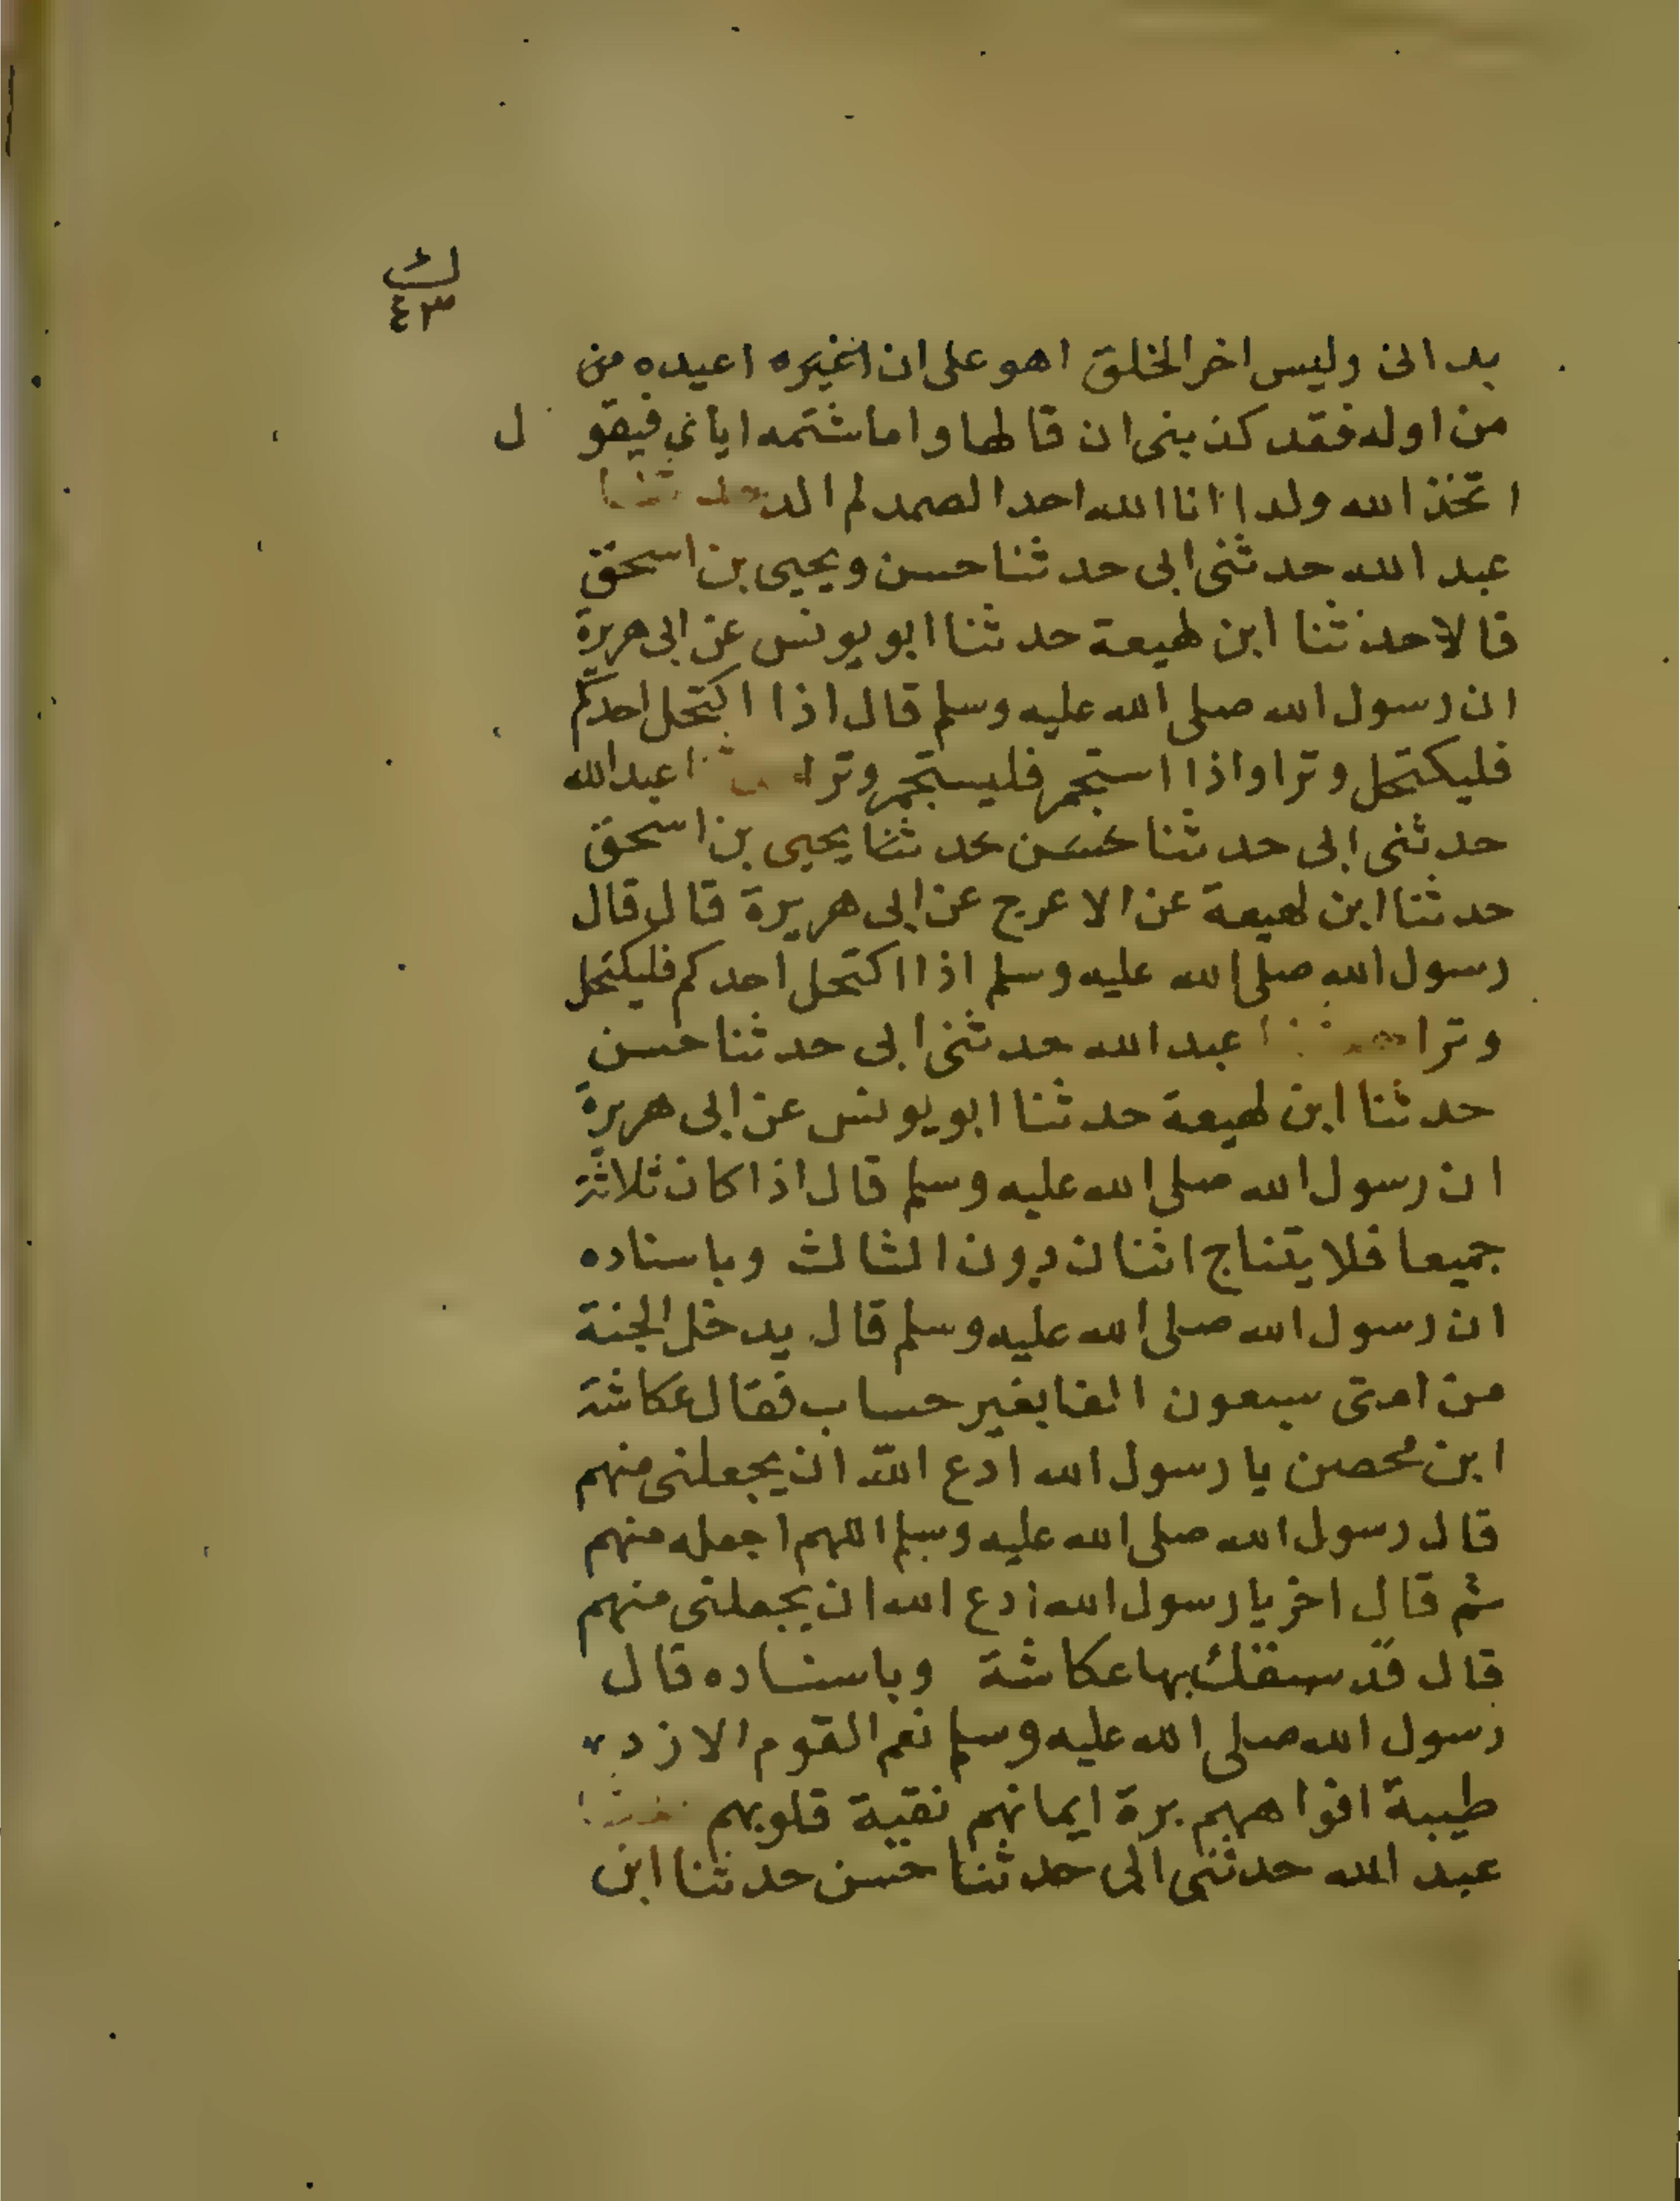 ك
٤٣
بدانى وليس اخر الخلق اهو على ان اغيره اعيده من
من اوله فقد كذبنى ان قالها واما شتمه اياي فيقول
اتخذ الله ولدا انا الله احد الصمد لم الد حدثنا
عبد الله حدثنى ابى حدثنا حسن ويحيى بن اسحق
قالا حدثنا ابن لهيعة حدثنا ابو يونس عن ابى هريرة
ان رسول الله صلى الله عليه وسلم قال اذا اكتحل احدكم
فليكتحل وترا واذا استجمر فليستجمر وترا حدثنا عبد الله
حدثنى ابى حدثنا حسن حدثنا يحيى بن اسحق
حدثنا ابن لهيعة عن الاعرج عن ابى هريرة قال قال
رسول الله صلى الله عليه وسلم اذا اكتحل احدكم فليكتحل
وترا حدثنا عبد الله حدثنى ابى حدثنا حسن
حدثنا ابن لهيعة حدثنا ابو يونس عن ابى هريرة
ان رسول الله صلى الله عليه وسلم قال اذا كان ثلاثة
جميعا فلا يتناج اثنان دون الثالث وباسناده
ان رسول الله صلى الله عليه وسلم قال يدخل الجنة
من امتى سبعون الفا بغير حساب فقال عكاشة
ابن محصن يا رسول الله ادع الله ان يجعلنى منهم
قال رسول الله صلى الله عليه وسلم اللهم اجعله منهم
ثم قال اخر يا رسول الله ادع الله ان يجعلنى منهم
قال قد سبقك بها عكاشة وباسناده قال
رسول الله صلى الله عليه وسلم نعم القوم الازد
طيبة افواههم برة ايمانهم نقية قلوبهم حدثنا
عبد الله حدثنى ابى حدثنا حسن حدثنا ابن